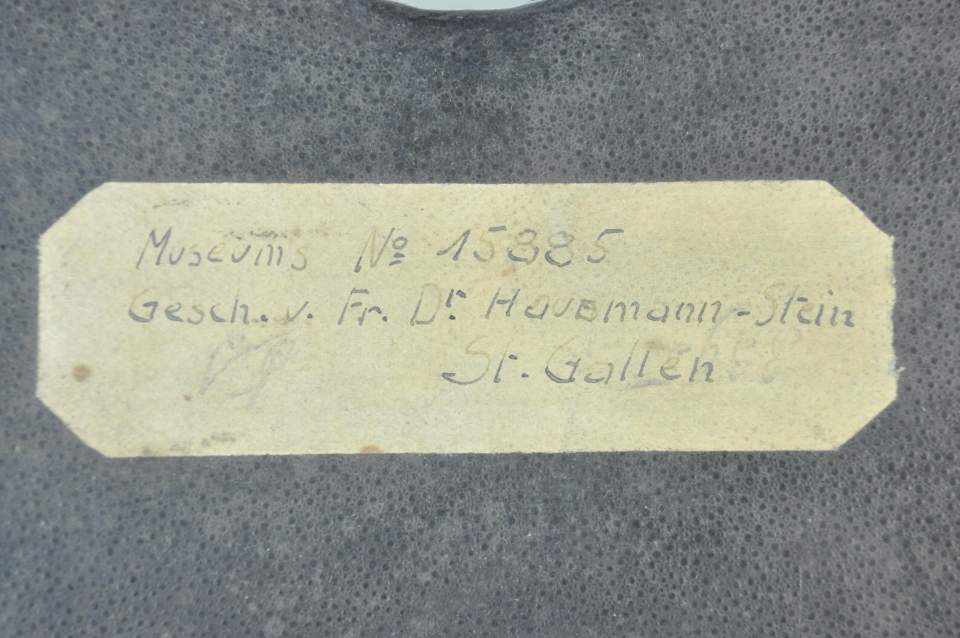 Museums Nº 15885
Gesch. v. Fr. Dr Hausmann-Stein
St. Gallen